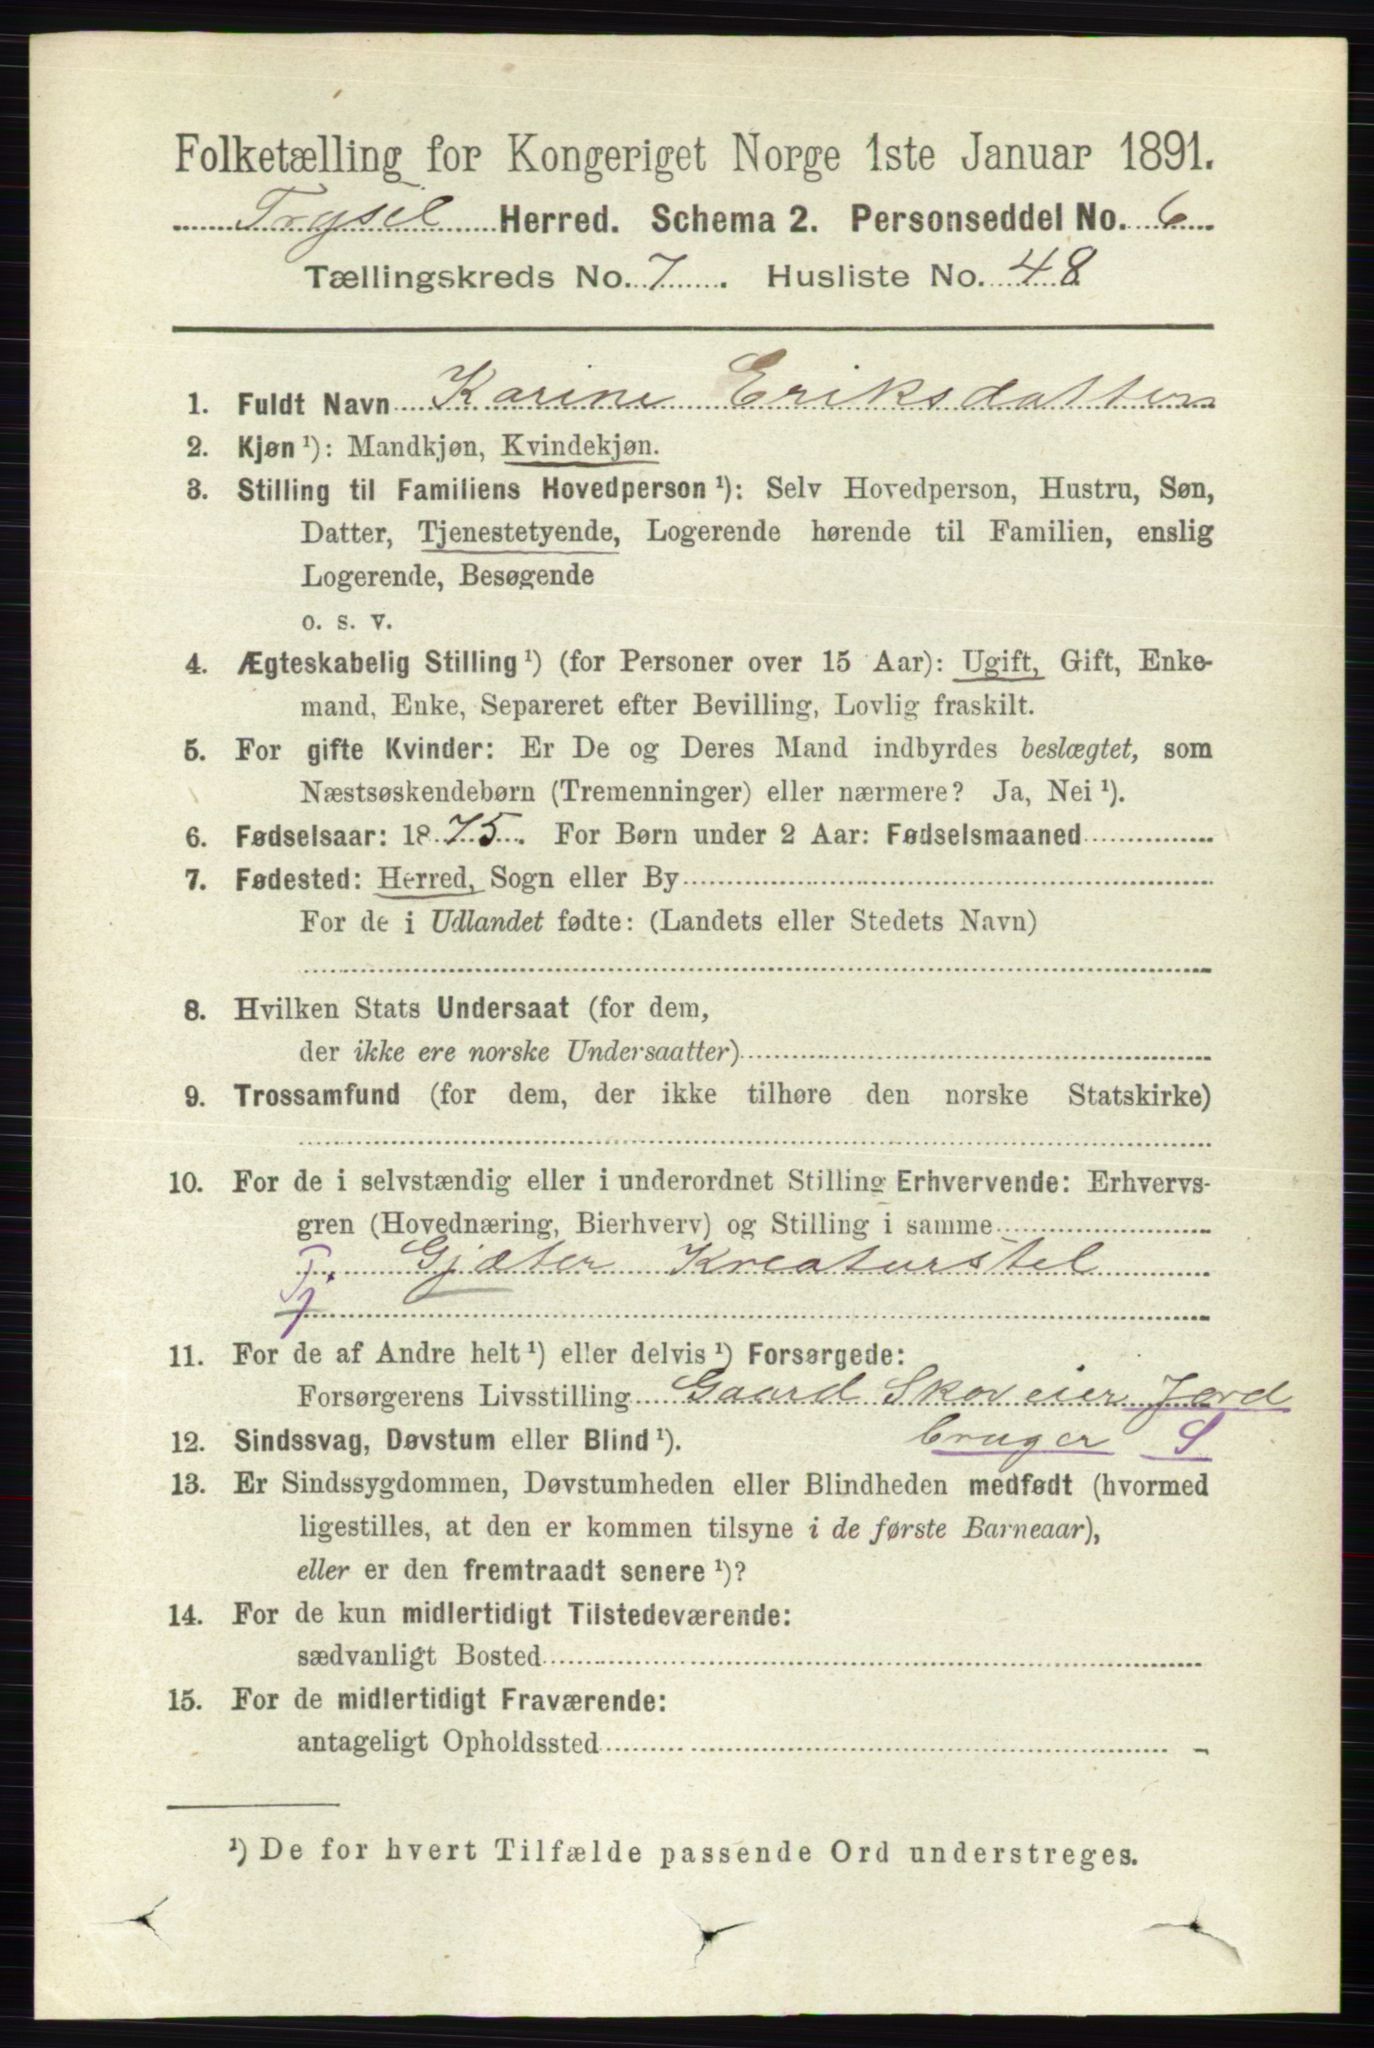 Folketælling for Kongeriget Norge 1ste Januar 1891.
Trysil Herred. Schema 2. Personseddel No. 6
Tællingskreds No. 7. Husliste No. 48
1. Fuldt Navn Karine Eriksdatter
2. Kjøn ¹): Mandkjøn, Kvindekjøn.
3. Stilling til Familiens Hovedperson ¹): Selv Hovedperson, Hustru, Søn,
Datter, Tjenestetyende, Logerende hørende til Familien, enslig
Logerende, Besøgende
o. s. v.
4. Ægteskabelig Stilling ¹) (for Personer over 15 Aar): Ugift, Gift, Enke-
mand, Enke, Separeret efter Bevilling, Lovlig fraskilt.
5. For gifte Kvinder: Er De og Deres Mand indbyrdes beslægtet, som
Næstsøskendebørn (Tremenninger) eller nærmere? Ja, Nei ¹).
6. Fødselsaar: 1875. For Børn under 2 Aar: Fødselsmaaned
7. Fødested: Herred, Sogn eller By
For de i Udlandet fødte: (Landets eller Stedets Navn)
8. Hvilken Stats Undersaat (for dem,
der ikke ere norske Undersaatter)
9. Trossamfund (for dem, der ikke tilhøre den norske Statskirke)
10. For de i selvstændig eller i underordnet Stilling Erhvervende: Erhvervs-
gren (Hovednæring, Bierhverv) og Stilling i samme
Tj. Gjæter Kreaturstel
11. For de af Andre helt ¹) eller delvis ¹) Forsørgede:
Forsørgerens Livsstilling Gaard Skoveier Jord
12. Sindssvag, Døvstum eller Blind ¹). bruger S
13. Er Sindssygdommen, Døvstumheden eller Blindheden medfødt (hvormed
ligestilles, at den er kommen tilsyne i de første Barneaar),
eller er den fremtraadt senere ¹)?
14. For de kun midlertidigt Tilstedeværende:
sædvanligt Bosted
15. For de midlertidigt Fraværende:
antageligt Opholdssted
¹) De for hvert Tilfælde passende Ord understreges.